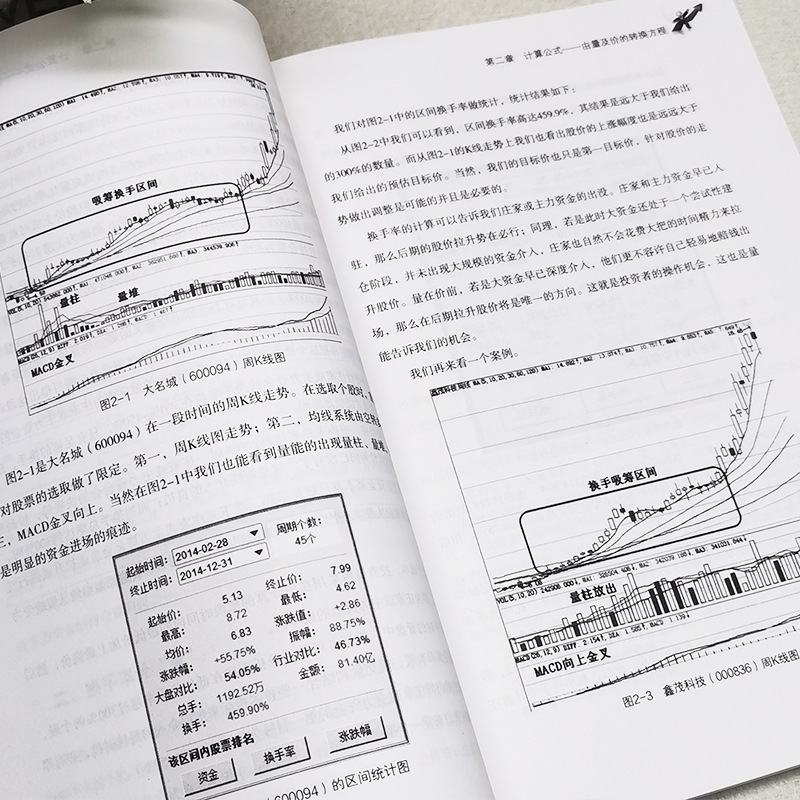 吸筹换手区间
量柱
量堆
MACD金叉
图2-1 大名城（600094）周K线图
图2-1是大名城（600094）在一段时间的周K线走势。在选取个股时，
对股票的选取做了限定。第一，周K线图走势；第二，均线系统由空转
三，MACD金叉向上。当然在图2-1中我们也能看到量能的出现量柱、量堆，
是明显的资金进场的痕迹。
起始时间： 2014-02-28 周期个数：
终止时间： 2014-12-31 45个
起始价： 5.13 终止价： 7.99
最高： 8.72 最低： 4.62
均价： 6.83 涨跌值： +2.86
涨跌幅： +55.75% 振幅： 88.75%
大盘对比： 54.05% 行业对比： 46.73%
总手： 1192.52万 金额： 81.40亿
换手： 459.90%
该区间内股票排名
资金 换手率 涨跌幅
600094）的区间统计图
第二章 计算公式——由量及价的转换方程
我们对图2-1中的区间换手率做统计，统计结果如下：
从图2-2中我们可以看到，区间换手率高达459.9%，其结果是远大于我们给出
的300%的数量。而从图2-1的K线走势上我们也看出股价的上涨幅度也是远远大于
我们给出的预估目标价。当然，我们的目标价也只是第一目标价，针对股价的走
势做出调整是可能的并且是必要的。
换手率的计算可以告诉我们庄家或主力资金的出没。庄家和主力资金早已入
驻，那么后期的股价拉升势在必行；同理，若是此时大资金还处于一个尝试性建
仓阶段，并未出现大规模的资金介入，庄家也自然不会花费大把的时间精力来拉
升股价。量在价前，若是大资金早已深度介入，他们更不容许自己轻易地赔钱出
场，那么在后期拉升股价将是唯一的方向。这就是投资者的操作机会，这也是量
能告诉我们的机会。
我们再来看一个案例。
换手吸筹区间
量柱放出
MACD向上金叉
图2-3 鑫茂科技（000836）周K线图